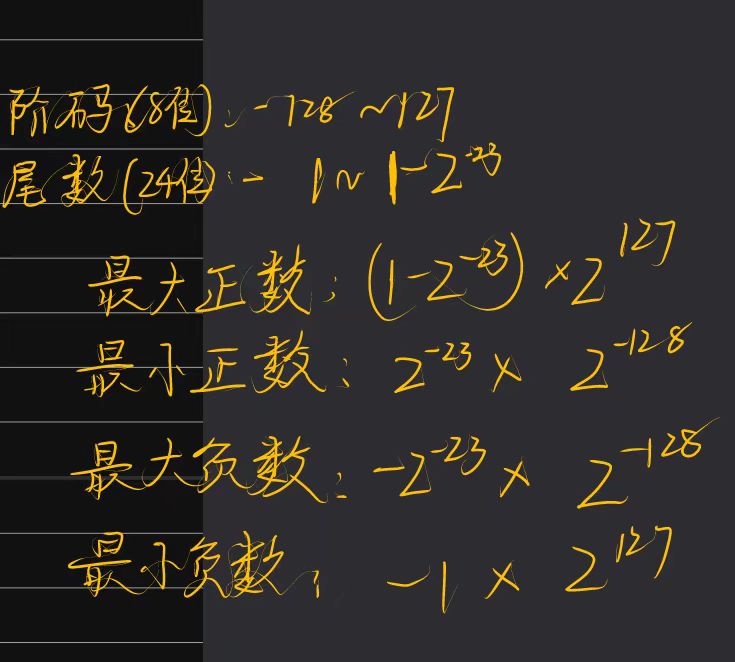 阶码(8位):-128~127
尾数(24位):-1~1-2^-23
最大正数:(1-2^-23)×2^127
最小正数:2^-23×2^-128
最大负数:-2^-23×2^-128
最小负数:-1×2^127